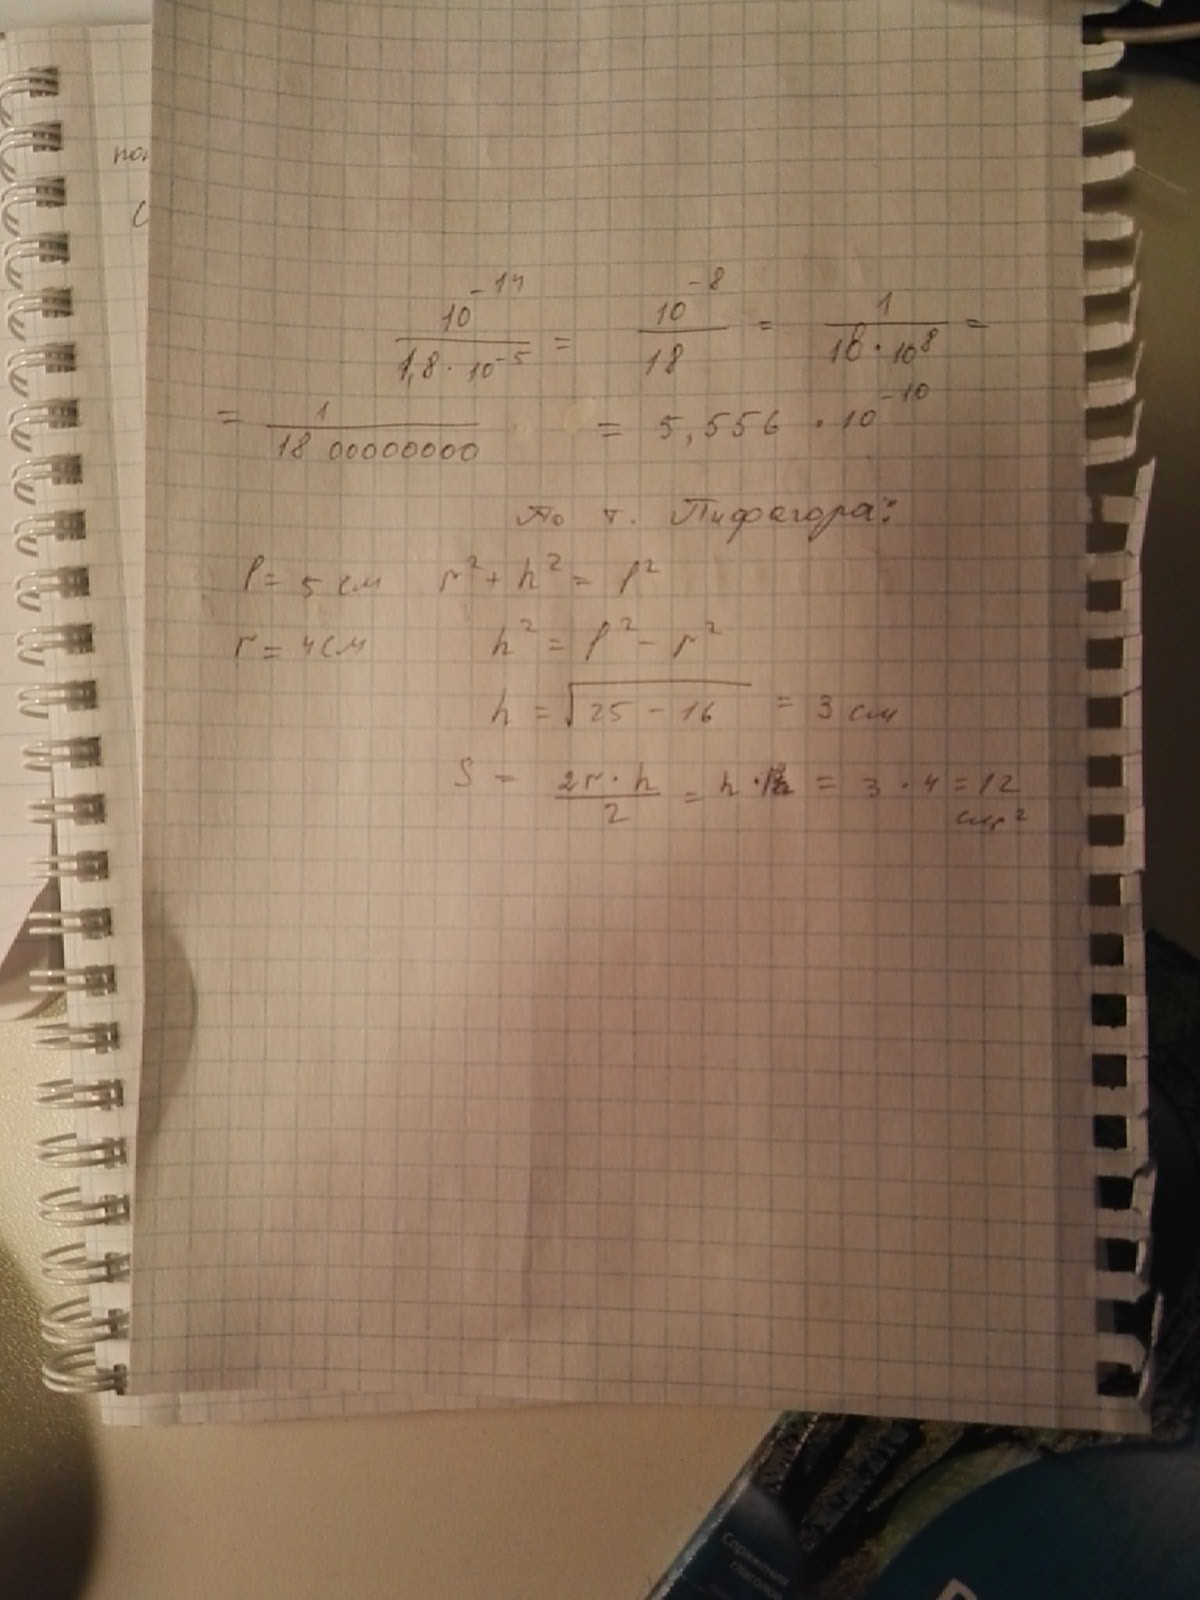 10^-14 / 1,8 · 10^-5 = 10^-8 / 18 = 1 / 18 · 10^8 =
= 1 / 18 00000000 = 5,556 · 10^-10
По т. Пифагора:
l = 5 см r² + h² = l²
r = 4 см h² = l² - r²
h = √25 - 16 = 3 см
S = 2r · h / 2 = h · = 3 · 4 = 12 см²
Спряжение
глаголов